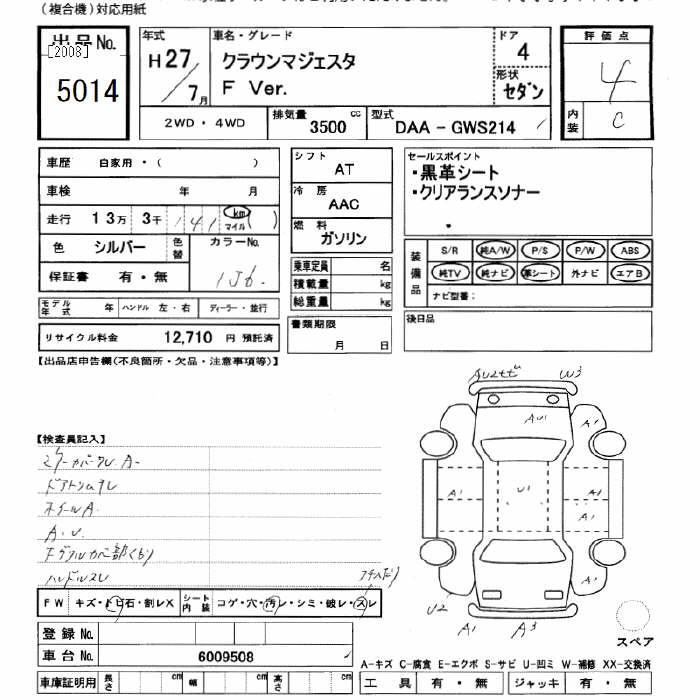 (複合機)対応用紙
出品No.
[2008]
5014
年式
H27/7月
車名・グレード
クラウンマジェスタ
F Ver.
ドア
4
形状
セダン
評価点
4
内装
C
2WD・4WD
排気量 3500 cc
型式 DAA-GWS214
車歴 自家用・( )
車検 年 月
走行 13万 3千 141 km マイル ( )
色 シルバー
色替
カラーNo.
1J6
保証書 有・無
シフト
AT
冷房
AAC
燃料
ガソリン
乗車定員 名
積載量 kg
総重量 kg
セールスポイント
・黒革シート
・クリアランスソナー
装備品
S/R 純A/W P/S P/W ABS
純TV 純ナビ 革シート 外ナビ エアB
ナビ型番:
モデル年式 年 ハンドル 左・右 ディーラー・並行
リサイクル料金 12,710 円 預託済
書類期限
月 日
後日品
【出品店申告欄(不良箇所・欠品・注意事項等)】
【検査員記入】
ドアトリムスレ
ホイールA
A.U.
ハンドルスレ
W3
AU1
A1
A1
U1
A1
A1
A1
U2
A1
A3
スペア
FW キズ・トビ石・割レX シート内装 コゲ・穴・汚レ・シミ・破レ・スレ
登録No.
車台No. 6009508
車庫証明用 長さ cm 幅 cm 高さ cm
A-キズ C-腐食 E-エクボ S-サビ U-凹ミ W-補修 XX-交換済
工具 有・無 ジャッキ 有・無